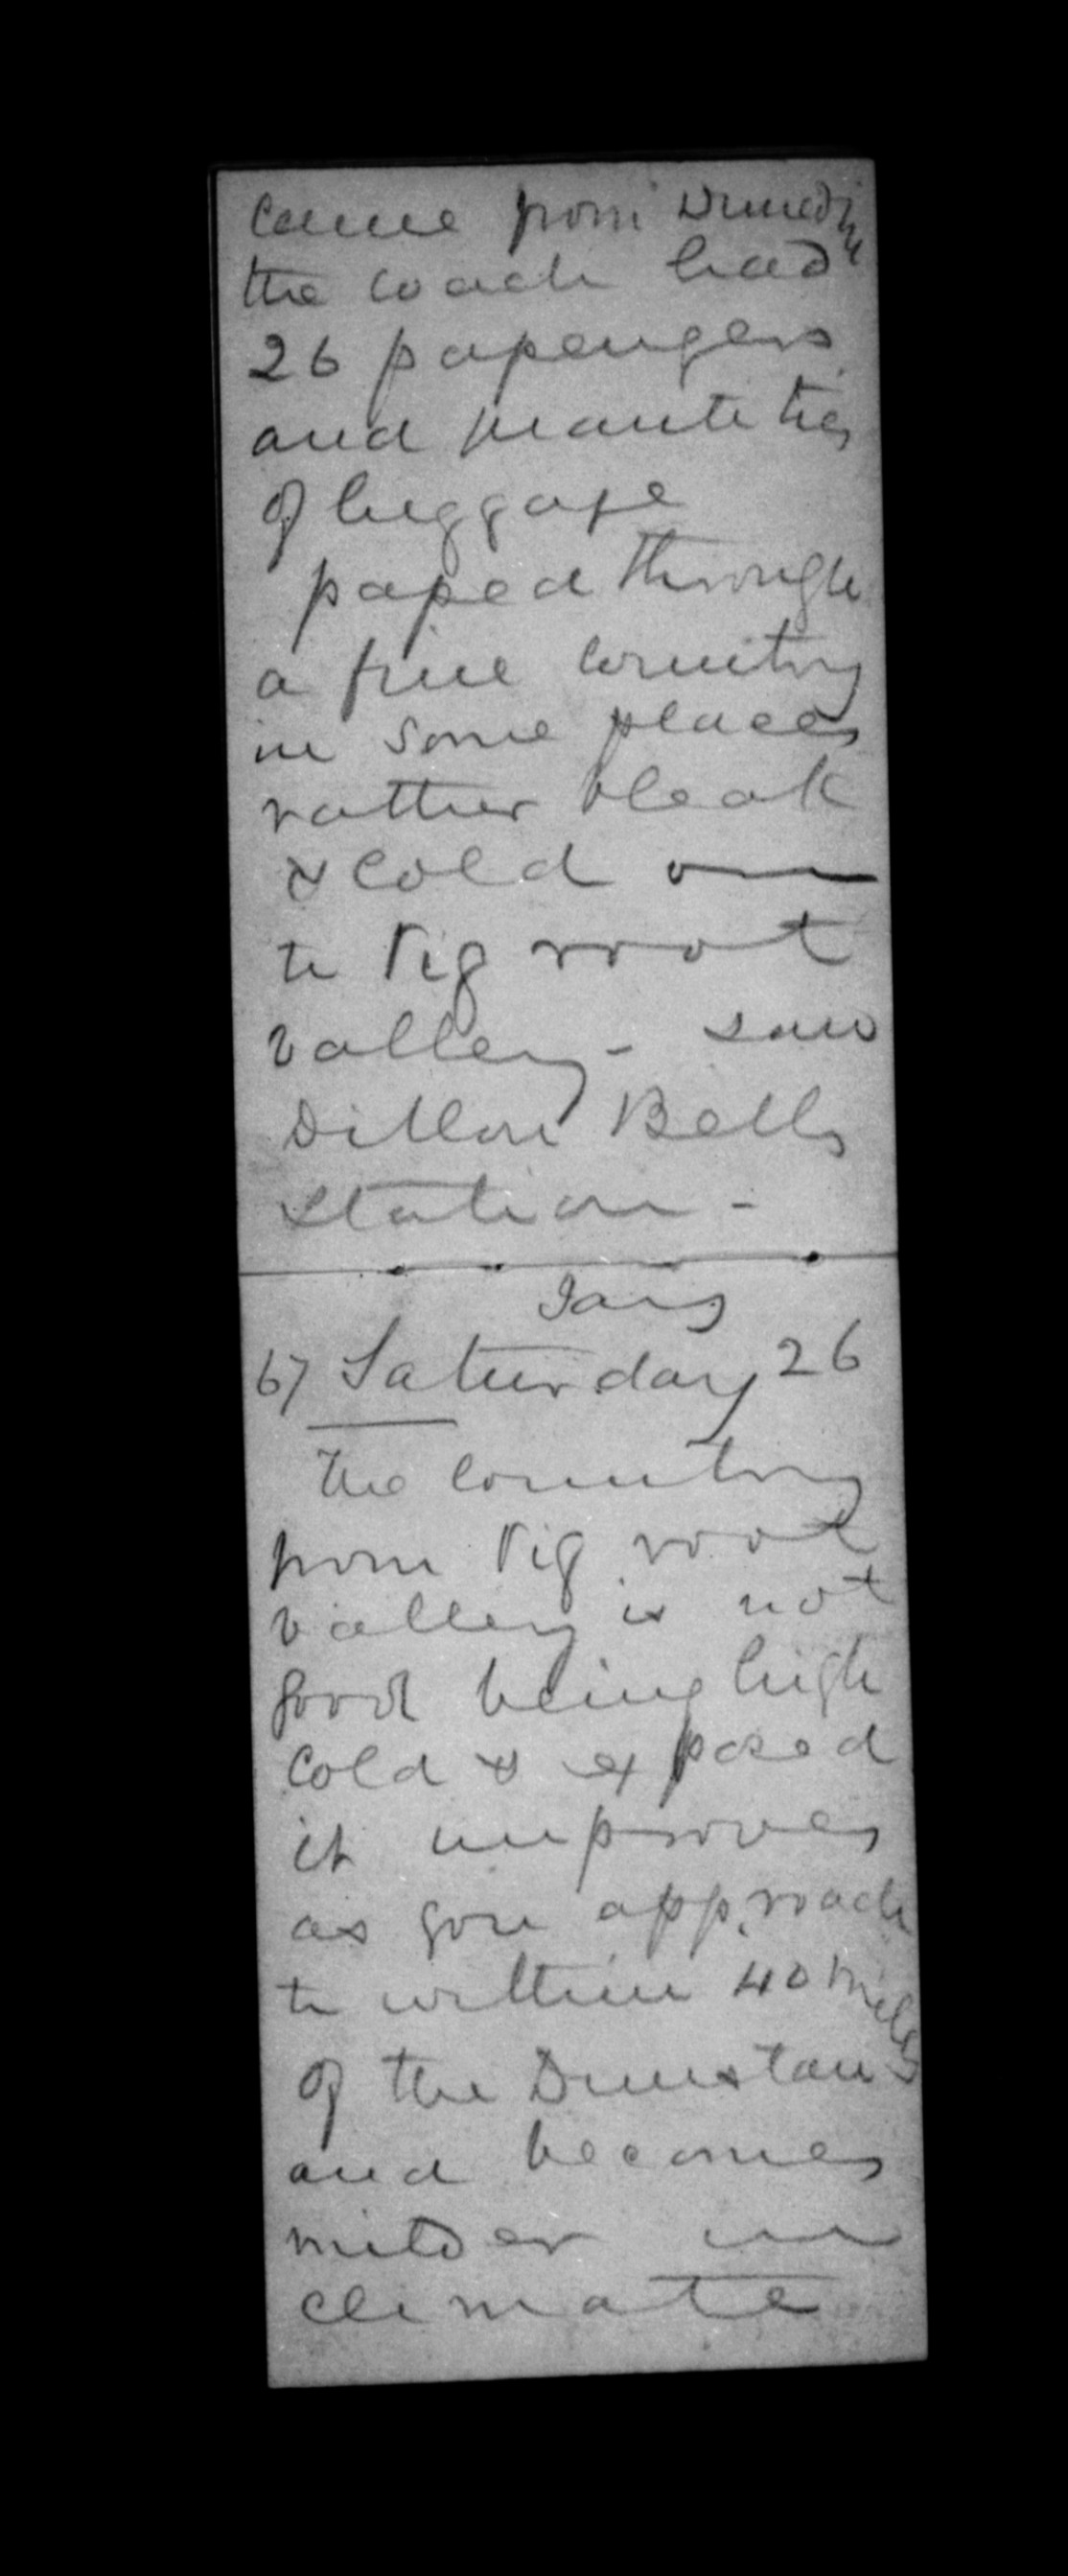 came from Dunedin
the coach had
26 passengers
and quantities
of luggage
passed through
a fine country
in some places
rather bleak
& cold on
to Pig root
valley - saw
Dillon Bells
station -
Jany
67 Saturday 26
The country
from Pig root
valley is not
good being high
cold & exposed
it improves
as you approach
to within 40 miles
of the Dunstan
and becomes
milder in
climate